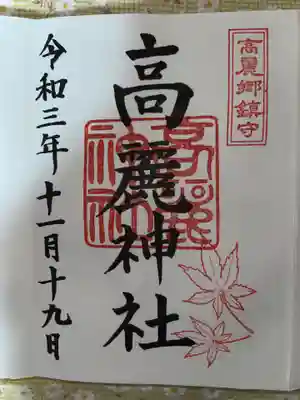 高麗郷鎮守
高麗神社
令和三年十一月十九日